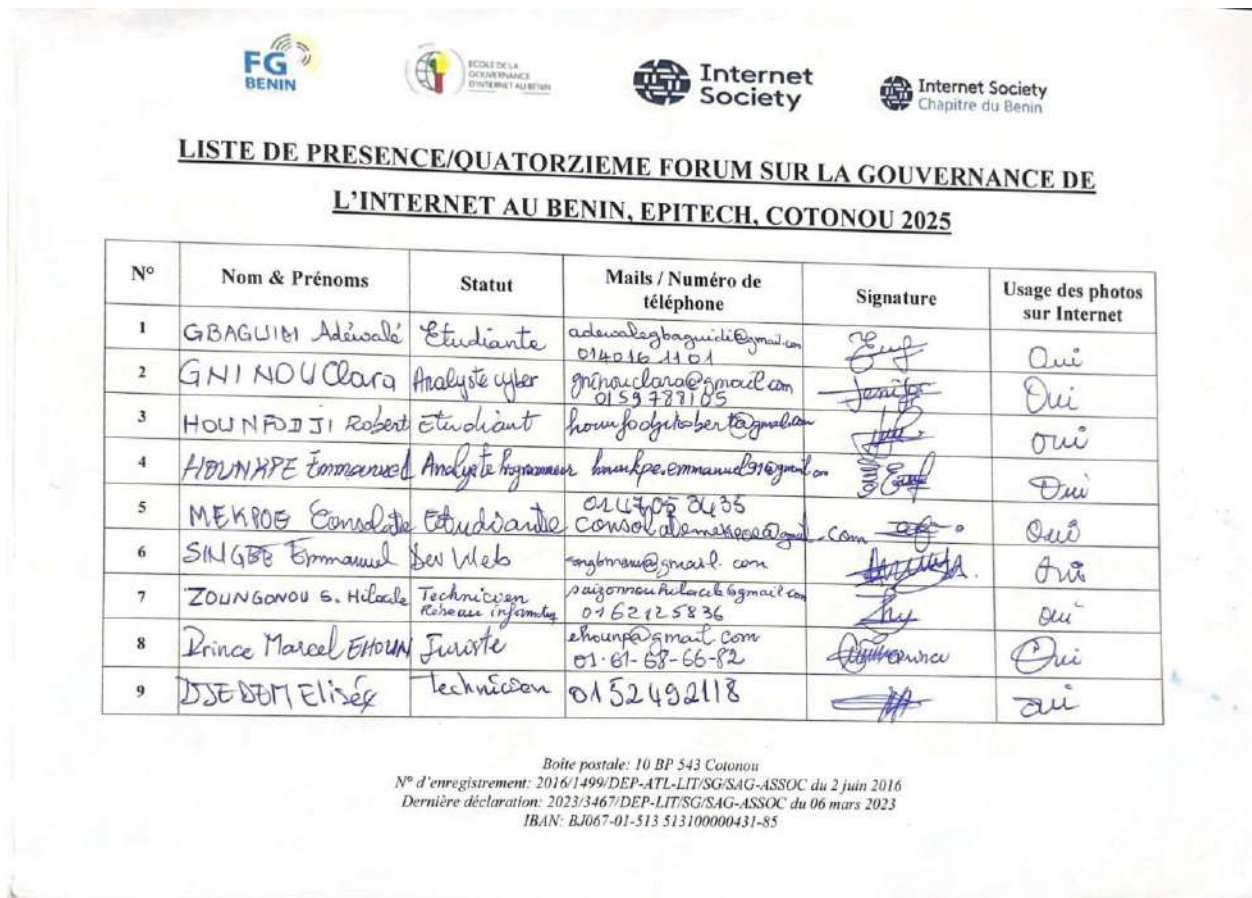 FG
BENIN
ECOLE DE LA
GOUVERNANCE
D'INTERNET AU BENIN
Internet
Society
Internet Society
Chapitre du Benin
LISTE DE PRESENCE/QUATORZIEME FORUM SUR LA GOUVERNANCE DE
L'INTERNET AU BENIN, EPITECH, COTONOU 2025
N° Nom & Prénoms Statut Mails / Numéro de téléphone Signature Usage des photos sur Internet
1 GBAGUIDI Adéwalé Etudiante adewalegbaguidi@gmail.com Oui
0140161101
2 GNINOU Clara Analyste cyber gninouclara@gmail.com Jenifer Oui
0159788105
3 HOUNFODJI Robert Etudiant hounfodjirobert@gmail.com oui
4 HOUNKPE Emmanuel Analyste Programmeur hounkpe.emmanuel91@gmail.com Oui
5 MEKPOE Consolate Etudiante 0147053435 Oui
consolatemekpoe@gmail.com
6 SINGBE Emmanuel Dev Web @gmail.com Oui
7 ZOUNGONOU S. Hilacle Technicien oui
Réseau 0162125836
8 Prince Marcel EHOUN Juriste ehounp@gmail.com Oui
01-61-68-66-82
9 DJEDEM Elisée Technicien 0152492118 oui
Boîte postale: 10 BP 543 Cotonou
N° d'enregistrement: 2016/1499/DEP-ATL-LIT/SG/SAG-ASSOC du 2 juin 2016
Dernière déclaration: 2023/3467/DEP-LIT/SG/SAG-ASSOC du 06 mars 2023
IBAN: BJ067-01-513 513100000431-85